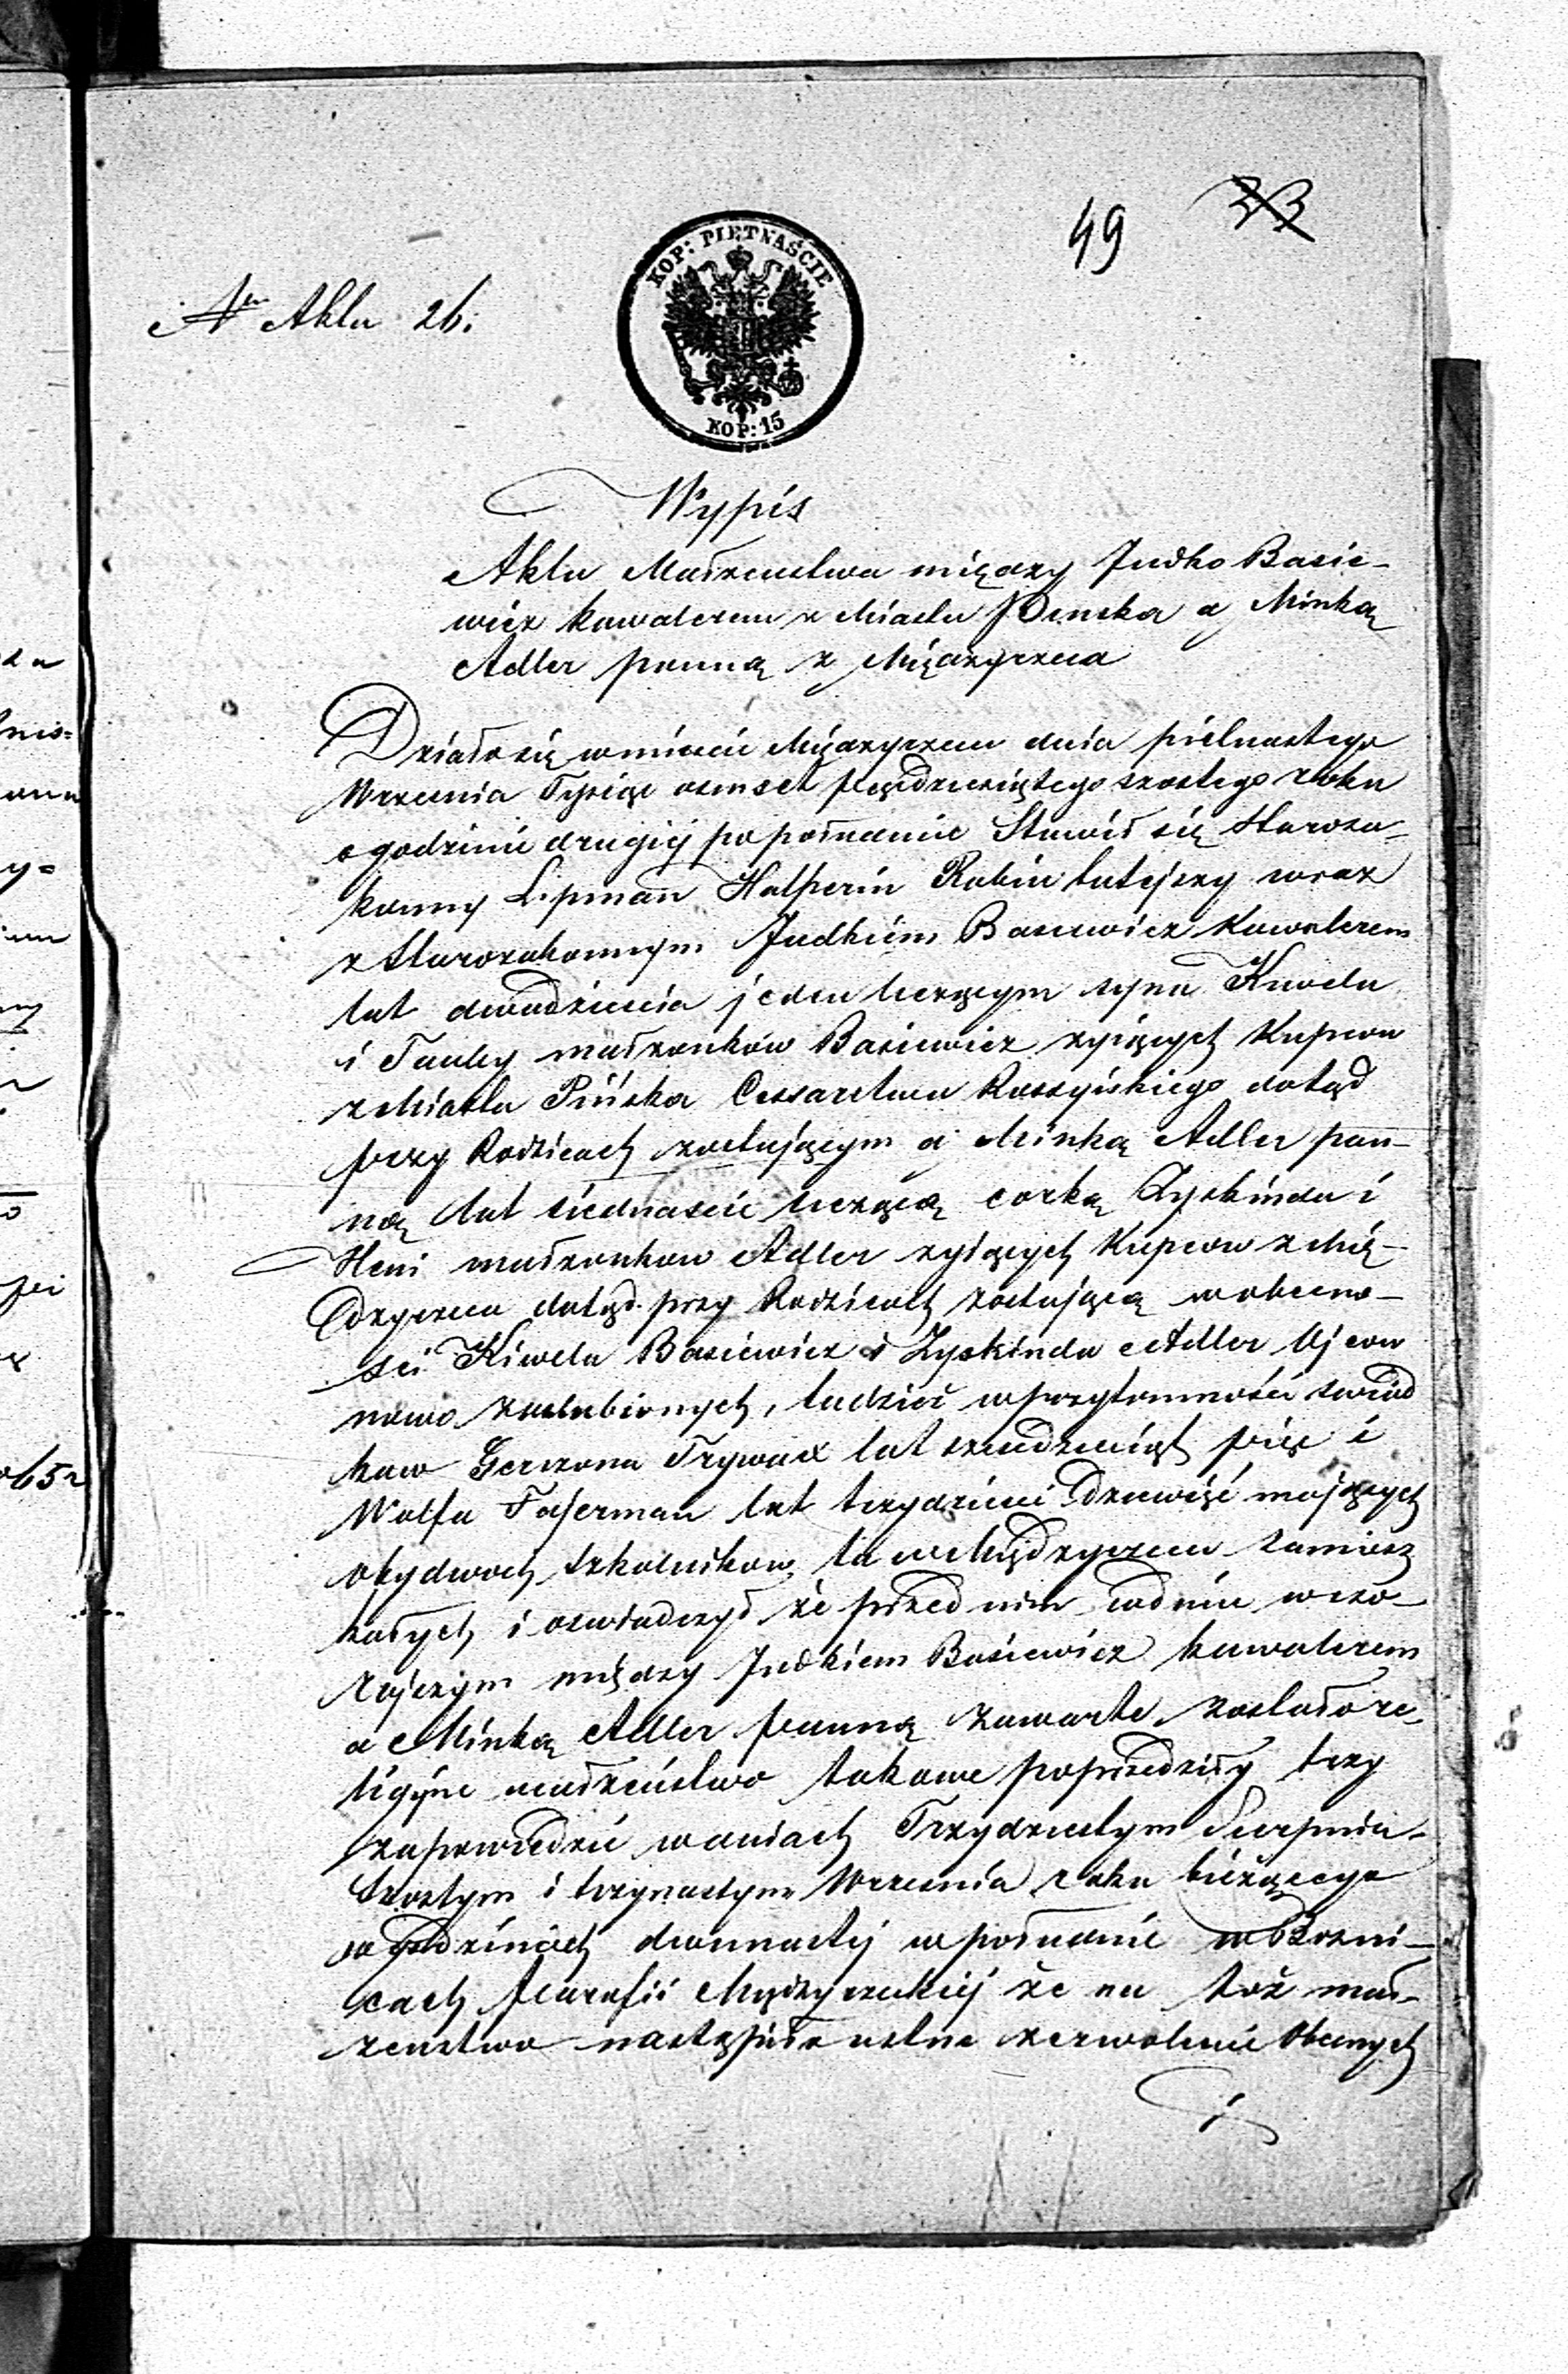 49 23
KOP: PIĘTNAŚCIE
KOP: 15
Nr Aktu 26.
Wypis
Aktu Małzenstwa między Judko Basie-
wicz kawalerem z Miasta Pinska a Minką
Adler panną z Międzyrzeca
Działo się w mieście Międzyrzecu dnia pietnastego
Wrzesnia Tysiąc osmset pięćdziesiątego szostego roku
o godzinie drugiej po południe Stawił się Staroza-
konny Lipman Halperin Rabin tutejszy wraz
z Starozakonnym Judkiem Basiewicz Kawalerem
lat dwadziescia jeden liczącym syna Kiwela
i Tauby małzonków Basiewicz zyiących Kupcow
z Miasta Pińska Cessarstwa Rossyiskiego dotąd
przy Rodzicach zostającym a Minką Adler pan-
ną lat siednascie liczącą corką Zyskinda i
Heni małzonkow Adler zyiących Kupcow z Mię-
dzyrzeca dotąd przy Rodzicach zostającą w obecno-
sci Kiwela Basiewicz i Zyskinda Adler Ojcow
nowo zaslubionych, tudzież w przytomności swiad
kow Gerszona Trywax lat szesdziesiąt pięc i
Wolfa Fajerman lat trzydziesci dziewięć mających
obydwoch szkolnikow tu w Międzyrzecu zamiesz
kałych i oswiadczył że przed nim w dniu wczo-
rajszym między Judkiem Basiewicz kawalerem
a Minką Adler panną zawarte zostało re-
ligijne małzeństwo takowe poprzedziły trzy
zapowiedzie w dniach Trzydziestym Sierpnia
szostym i trzynastym Wrzesnia roku bieżącego
o godzinach dwunastej w południe w Bozni-
cach Parafii Międzyrzeckiej że na toż mał-
zenstwo nastąpiło ustne zezwolenie Obecnych